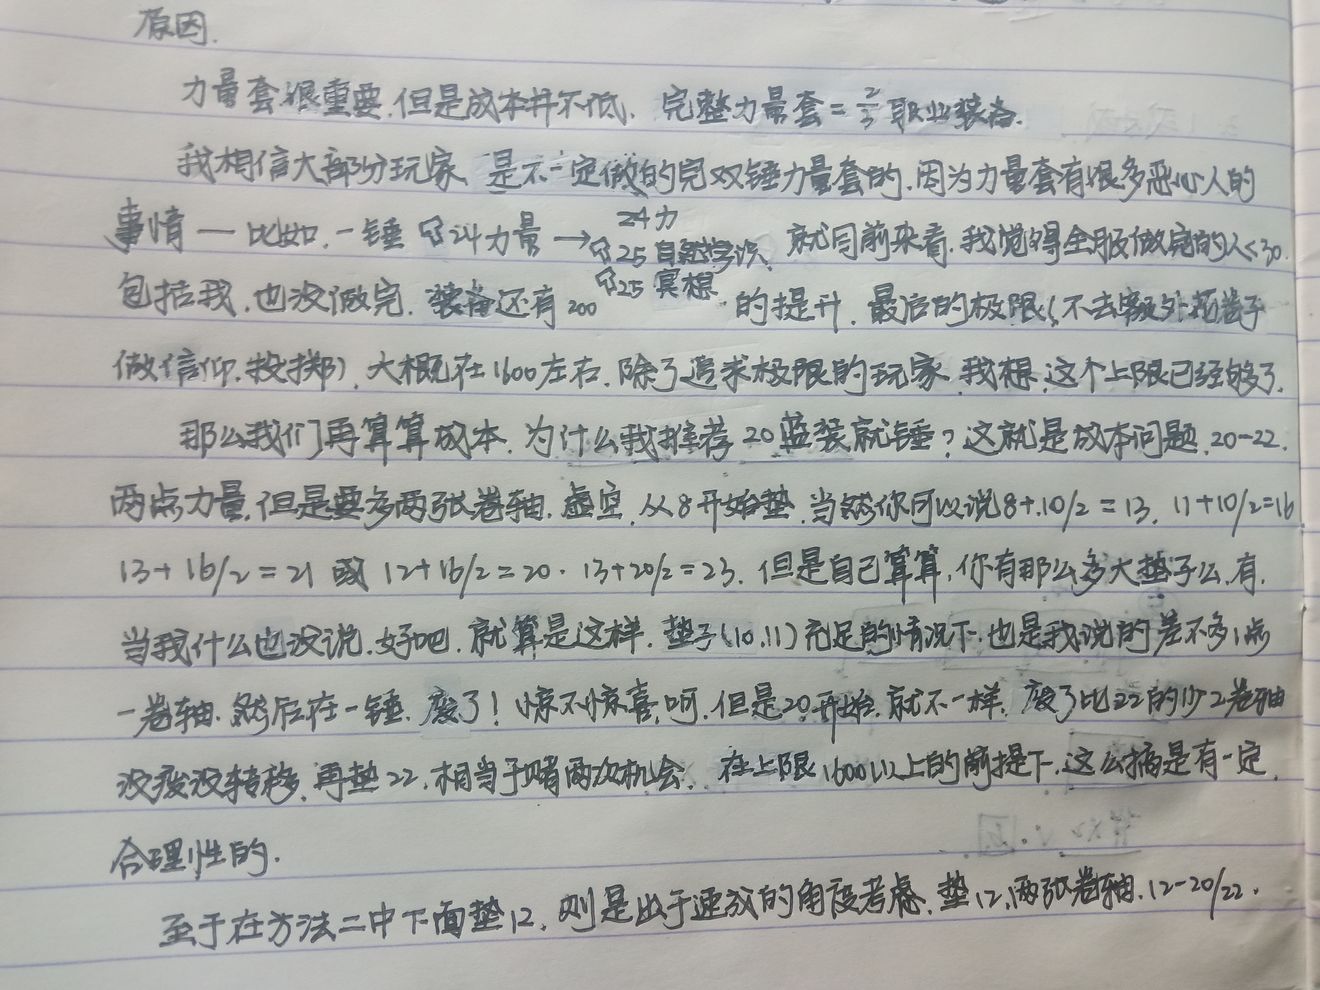 原因.
力量套很重要,但是成本并不低. 完整力量套=2/3职业装备.
我相信大部分玩家,是不一定做的完双锤力量套的.因为力量套有很多恶心人的
事情—比如,一锤 24力量→ 24力 25自然学识 25冥想 就目前来看,我觉得全服做完的人<30.
包括我,也没做完. 装备还有200 的提升.最后的极限(不去额外花卷子
做信仰.投掷),大概在1600左右.除了追求极限的玩家,我想,这个上限已经够了.
那么我们再算算成本.为什么我推荐20蓝装就锤?这就是成本问题.20-22.
两点力量,但是要多两张卷轴.虚空,从8开始垫.当然你可以说8+10/2=13. 11+10/2=16
13+16/2=21 或 12+16/2=20. 13+20/2=23. 但是自己算算,你有那么多大垫子么.有.
当我什么也没说.好吧.就算是这样.垫子(10.11)充足的情况下.也是我说的差不多1点
一卷轴.然后在一锤.废了!惊不惊喜,呵.但是20开始.就不一样.废了比22的少2卷轴
没废没转移,再垫22.相当于赌两次机会. 在上限1600以上的前提下,这么搞是有一定
合理性的.
至于在方法二中下面垫12,则是出于速成的角度考虑.垫12,两张卷轴.12-20/22.